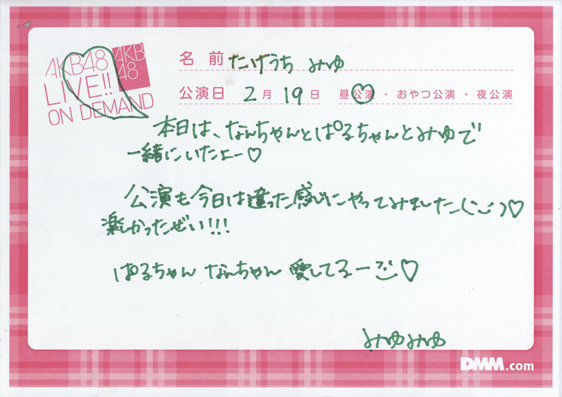 AKB48
LIVE!!
ON DEMAND
AKB
48
名前 たけうち みゆ
公演日 2月19日 昼公演・おやつ公演・夜公演
本日は、なんちゃんとぱるちゃんとみゆで
一緒にいたよー♡
公演も今日は違った感じにやってみました(・ᴗ・)♡
楽しかったぜい!!!
ぱるちゃん なんちゃん 愛してるー♡
みゆみゆ
DMM.com